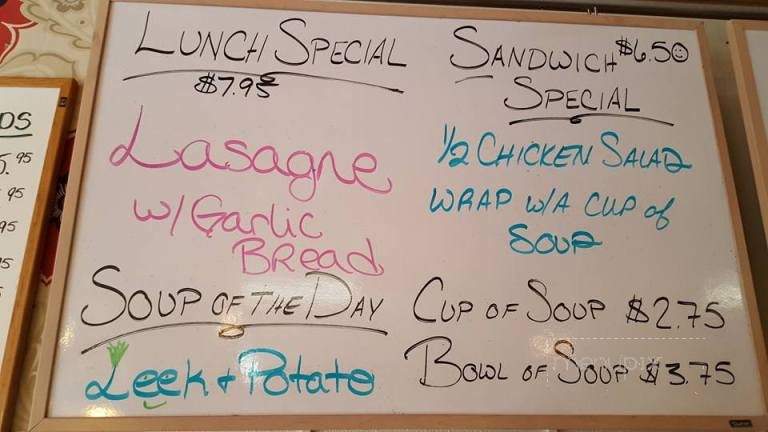 LUNCH SPECIAL
$7.95
Lasagne
w/ Garlic
BReaD
SOUP OF THE DAY
Leek + Potato
SANDWICH $6.50
SPECIAL
1/2 CHICKEN SALAD
WRAP W/A CUP of
SOUP
CUP OF SOUP $2.75
BOWL OF SOUP $3.75
DS
5.95
95
95
5
menupix